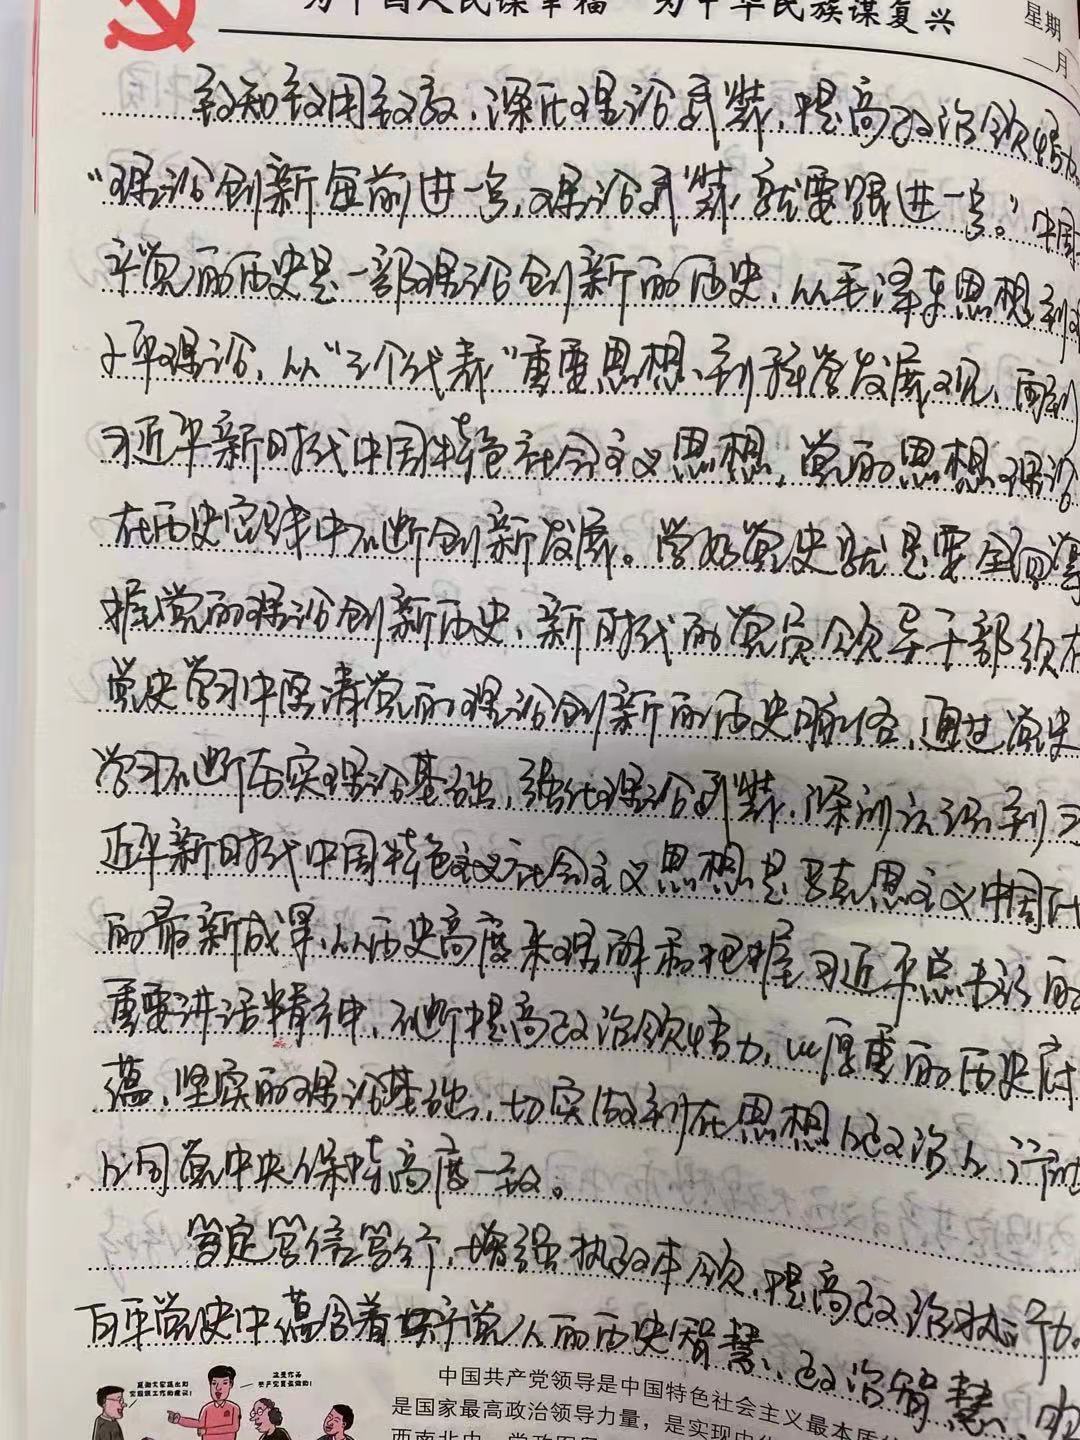 为中国人民谋幸福 为中华民族谋复兴
星期
月
致知致用致效,深化理论武装,提高政治领悟力
“理论创新每前进一步,理论武装就要跟进一步。”中国
产党的历史是一部理论创新的历史,从毛泽东思想到
小平理论,从“三个代表”重要思想到科学发展观,再到
习近平新时代中国特色社会主义思想,党的思想理论
在历史实践中不断创新发展。学好党史就是要全面掌
握党的理论创新历史,新时代的党员领导干部须在
党史学习中厘清党的理论创新的历史脉络,通过党史
学习不断夯实理论基础,强化理论武装,深刻认识到习
近平新时代中国特色主义社会主义思想是马克思主义中国化
的最新成果,从历史高度来理解和把握习近平总书记的
重要讲话精神,不断提高政治领悟力,以厚重的历史底
蕴、坚实的理论基础,切实做到在思想上政治上行动
上同党中央保持高度一致。
笃定笃信笃行,增强执政本领,提高政治执行力。
百年党史中蕴含着共产党人的历史智慧、政治智慧,
中国共产党领导是中国特色社会主义最本质
是国家最高政治领导力量,是实现中